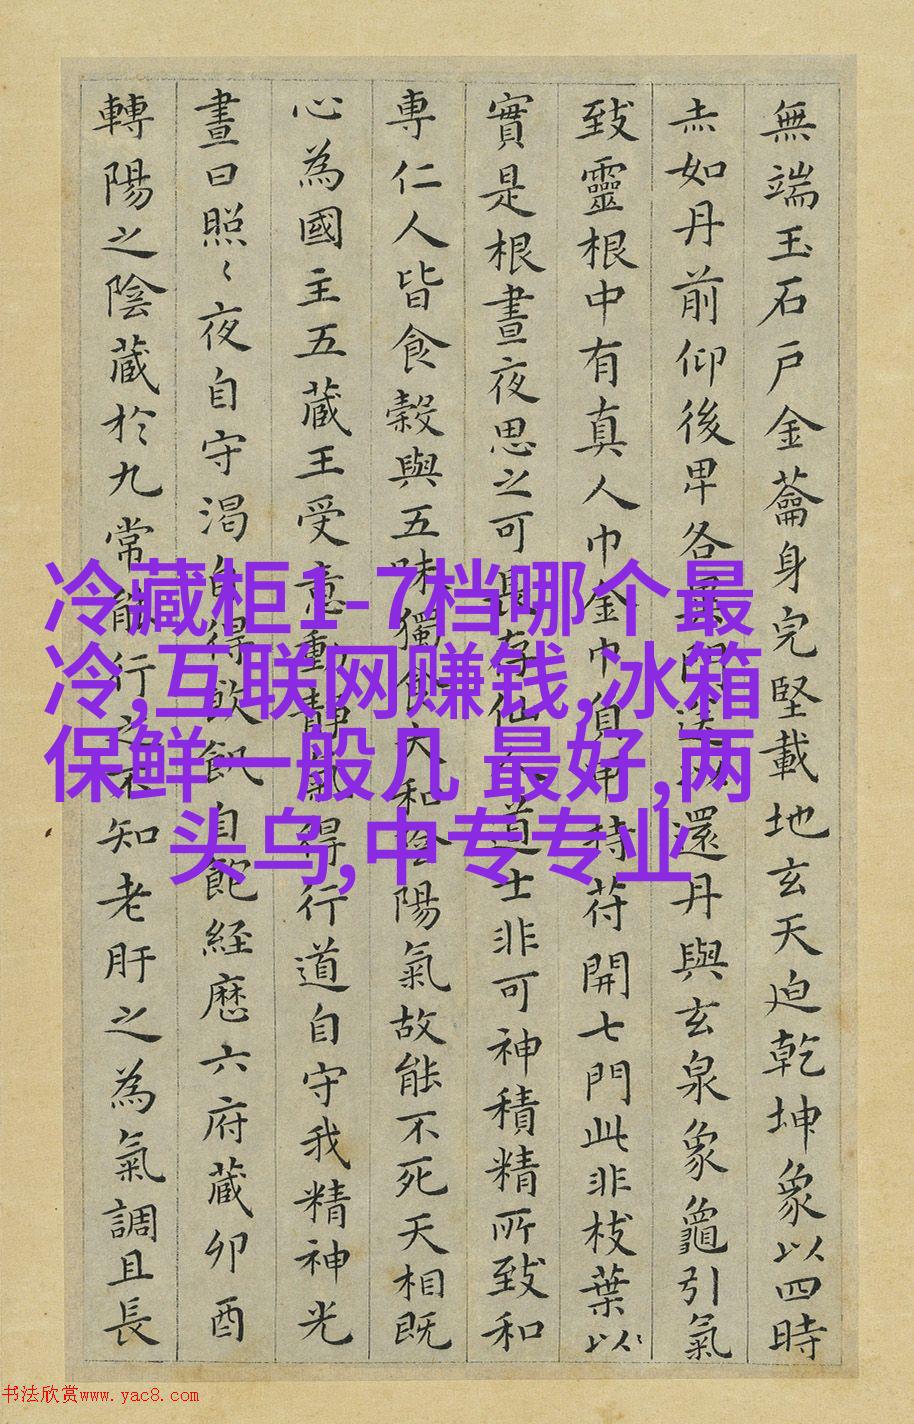 無端玉石戶金蘥身完堅載地玄天迫乾坤象以四時
赤如丹前仰後卑各異門送以還丹與玄泉象龜引氣
致靈根中有真人巾金巾負甲持苻開七門此非枝葉以
實是根晝夜思之可長存仙人道士非可神積精所致和
專仁人皆食穀與五味獨食大和陰陽氣故能不死天相既
心為國主五藏王受意動靜氣得行道自守我精神光
晝日照〻夜自守渴自得飲飢自飽経歷六府藏卯酉
轉陽之陰蔵於九常能行之不知老肝之為氣調且長
冷藏柜1-7档哪个最
冷,互联网赚钱,冰箱
保鲜一般几 最好,两
头乌,中专专业
书法欣赏www.yac8.com